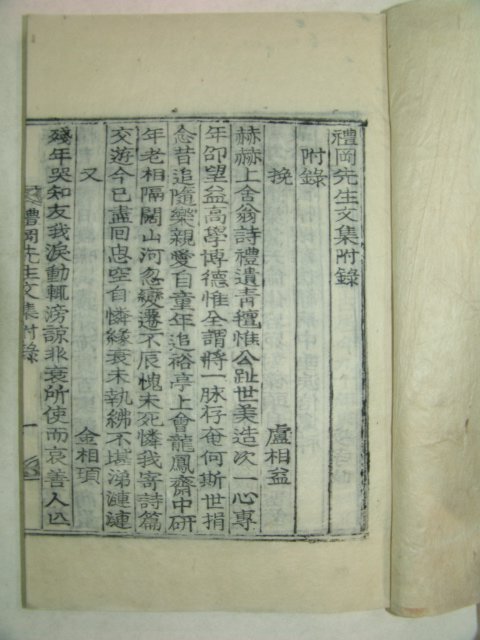 禮岡先生文集附錄
附錄
挽 盧相益
赫赫上舍翁詩禮遺青氊惟公趾世美造次一心專
年卲望益高學博德惟全謂將一脉存奄何斯世捐
念昔追隨樂親愛自童年追裕亭上會龍鳳齋中硏
年老相隔闊山河忽變遷不辰愧未死憐我寄詩篇
交遊今已盡回思空自憐緣衰未執紼不堪涕漣漣
又 金相頊
殘年哭知友我淚動輒滂諒非衰所使而哀善人亡
禮岡先生文集附錄 一